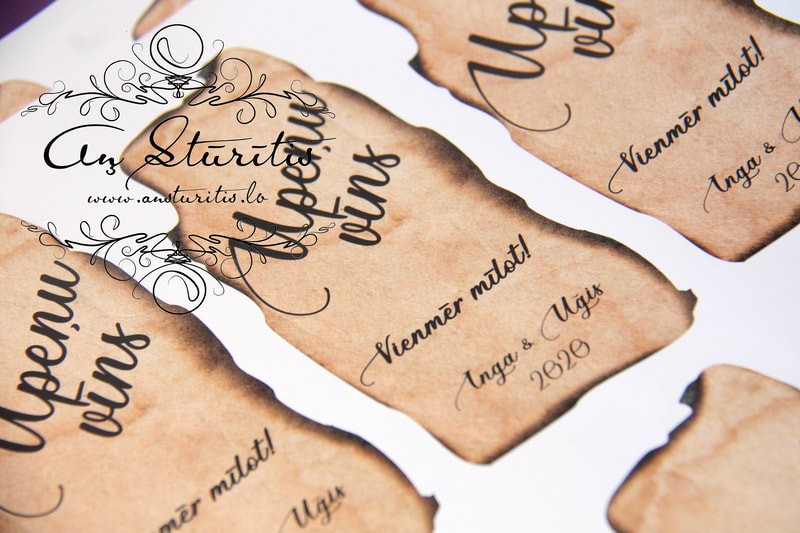 Aņ Stūrītis
www.ansturitis.lv
Upeņu
vīns
Vienmēr mīlot!
Inga & Uģis
2020
Up
vīn
Vienmēr mīlot!
Inga &
20
Upeņu
vīns
mēr mīlot!
Uģis